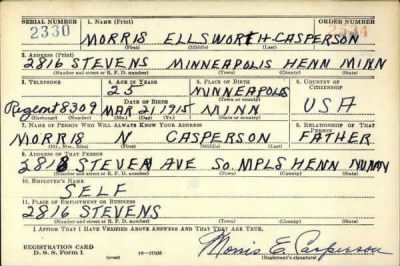 SERIAL NUMBER 1. NAME (Print) ORDER NUMBER
2330 MORRIS ELLSWORTH CASPERSON 2534
(First) (Middle) (Last)
2. ADDRESS (Print)
2816 STEVENS MINNEAPOLIS HENN MINN
(Number and street or R. F. D. number) (Town) (County) (State)
3. TELEPHONE 4. AGE IN YEARS 5. PLACE OF BIRTH 6. COUNTRY OF CITIZENSHIP
25 MINNEAPOLIS
DATE OF BIRTH (Town or county)
Regent 8309 MAR 21, 1915 MINN USA
(Exchange) (Number) (Mo.) (Day) (Yr.) (State or country)
7. NAME OF PERSON WHO WILL ALWAYS KNOW YOUR ADDRESS 8. RELATIONSHIP OF THAT PERSON
MORRIS N CASPERSON FATHER
(First) (Middle) (Last)
9. ADDRESS OF THAT PERSON
2816 STEVEN AVE SO. MPLS HENN
(Number and street or R. F. D. number) (Town) (County) (State)
10. EMPLOYER'S NAME
SELF
11. PLACE OF EMPLOYMENT OR BUSINESS
2816 STEVENS
(Number and street or R. F. D. number) (Town) (County) (State)
I AFFIRM THAT I HAVE VERIFIED ABOVE ANSWERS AND THAT THEY ARE TRUE.
REGISTRATION CARD
D. S. S. Form 1 Morris E. Casperson
(Registrant's signature)